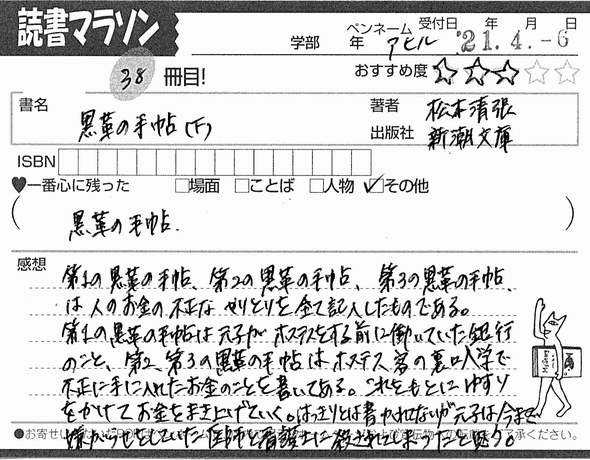 読書マラソン
学部 年 ペンネーム アヒル 受付日 年 月 日 '21.4.-6
38 冊目! おすすめ度 ☆☆☆☆☆
書名 黒革の手帖(下)
著者 松本清張
出版社 新潮文庫
ISBN
♥一番心に残った □場面 □ことば □人物 ☑その他
( 黒革の手帖. )
感想
第1の黒革の手帖、第2の黒革の手帖、第3の黒革の手帖、
は人のお金の不正なやりとりを全て記入したものである。
第1の黒革の手帖は元子がホステスをする前に働いていた銀行
のこと、第2、第3の黒革の手帖はホステス客の裏口入学で
不正に手に入れたお金のことを書いてある。これをもとにゆすり
をかけてお金をまき上げていく。はっきりとは書かれてないが元子は今まで
嫌がらせをしていた医師と看護士に殺されてしまったことと思う。